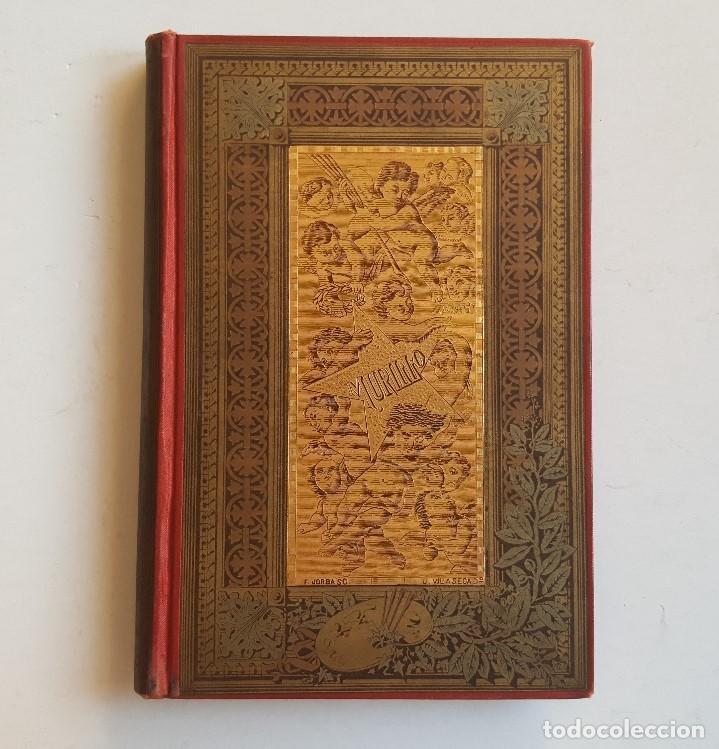 MURILLO
F. JORBA SC.
J. VILASECA Dº
todocoleccion